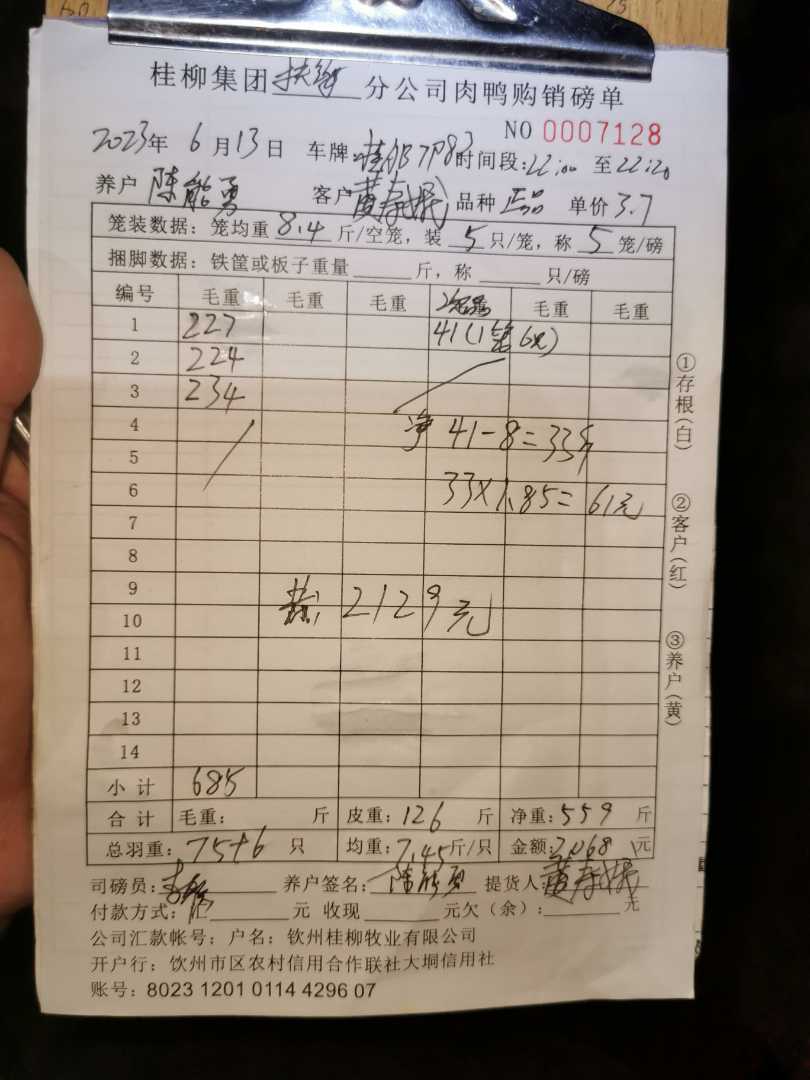 桂柳集团扶绥分公司肉鸭购销磅单
NO 0007128
2023年 6月13日 车牌: 7P83 时间段:22:00 至22:20
养户 陈能勇 客户 黄春 品种 正品 单价 3.7
笼装数据: 笼均重 8.4 斤/空笼, 装 5 只/笼, 称 5 笼/磅
捆脚数据: 铁筐或板子重量 斤, 称 只/磅
编号 毛重 毛重 毛重 次品 毛重 毛重
1 227 41(1笼6只)
2 224
3 234
4 净 41-8=33斤
5
6 33×1.85=61元
7
8
9
2129元
10
11
12
13
14
小计 685
合计 毛重: 斤 皮重:126 斤 净重:559 斤
总羽重: 75+6 只 均重:7.45斤/只 金额:2068元
司磅员: 养户签名: 陈能勇 提货人: 黄春
付款方式: 汇 元 收现 元欠(余): 元
公司汇款帐号: 户名: 钦州桂柳牧业有限公司
开户行: 钦州市区农村信用合作联社大垌信用社
账号: 8023 1201 0114 4296 07
①存根(白)
②客户(红)
③养户(黄)